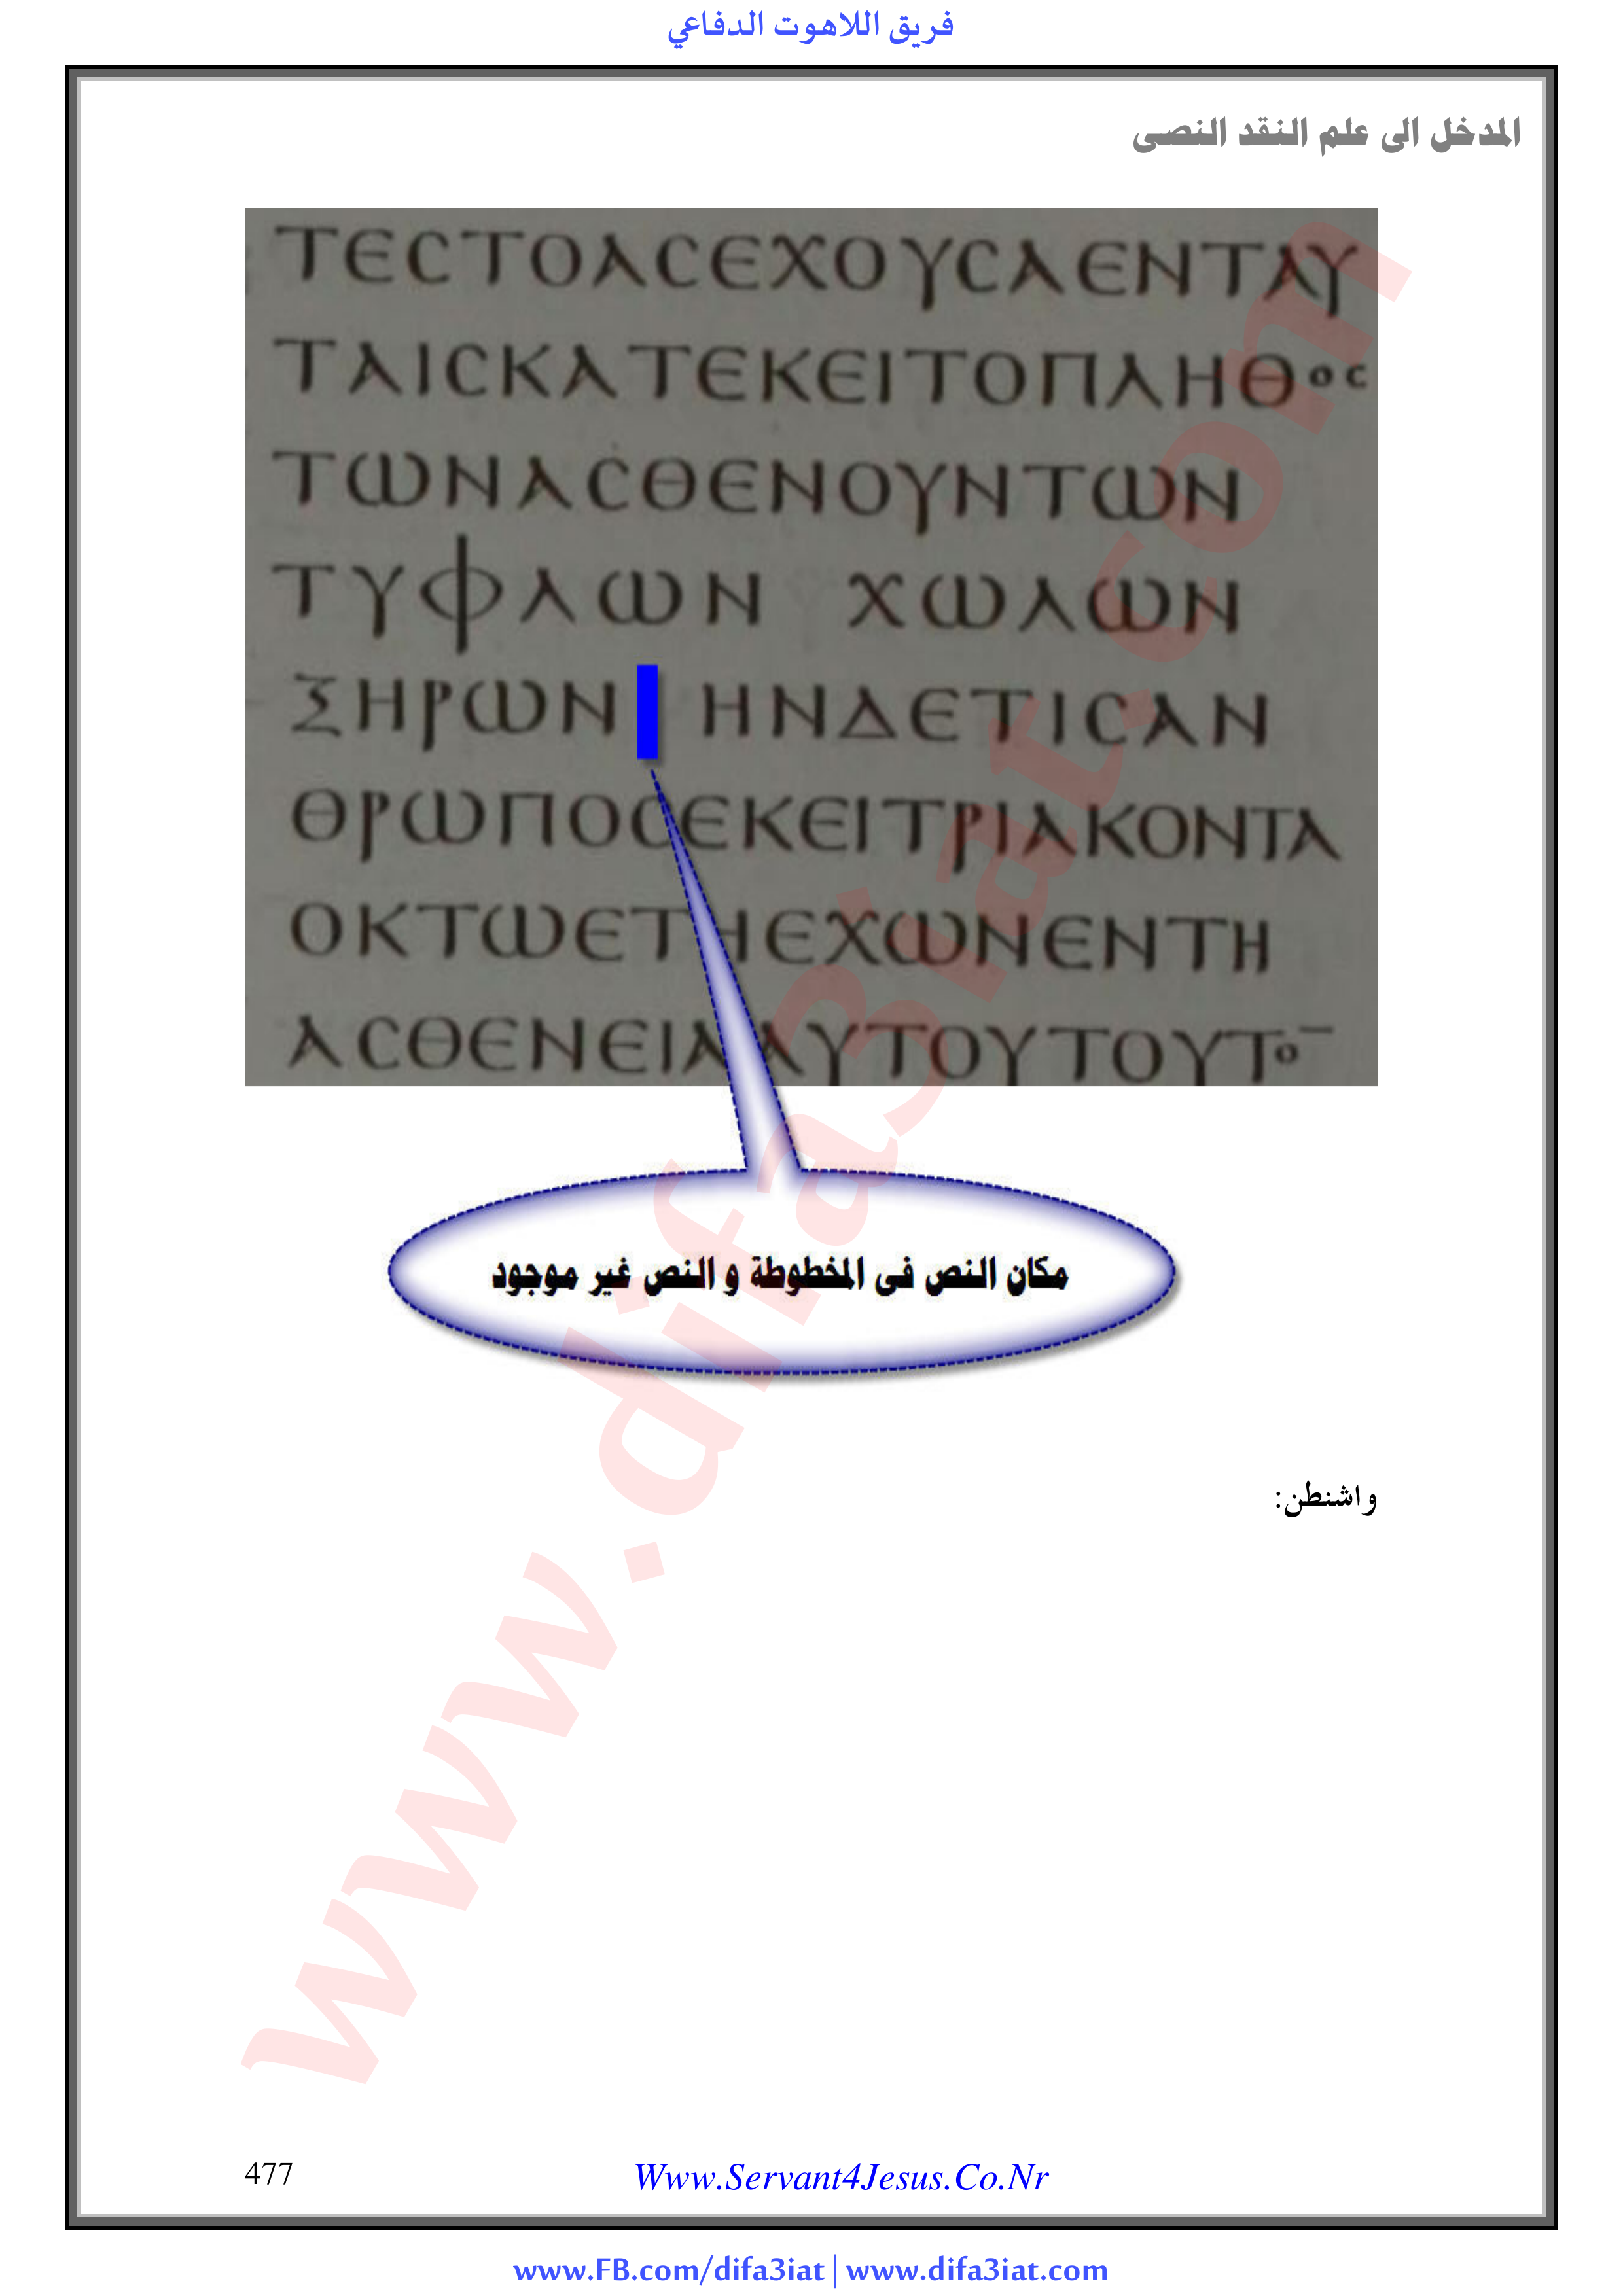 فريق اللاهوت الدفاعي
المدخل الى علم النقد النصى
ΤΕϹΤΟΑϹΕΧΟΥϹΑΕΝΤΑΥ
ΤΑΙϹΚΑΤΕΚΕΙΤΟΠΛΗΘΟϹ
ΤΩΝΑϹΘΕΝΟΥΝΤΩΝ
ΤΥΦΛΩΝ ΧΩΛΩΝ
ΞΗΡΩΝ ΗΝΔΕΤΙϹΑΝ
ΘΡΩΠΟϹΕΚΕΙΤΡΙΑΚΟΝΤΑ
ΟΚΤΩΕΤΗΕΧΩΝΕΝΤΗ
ΑϹΘΕΝΕΙΑΑΥΤΟΥΤΟΥΤΟ¯
مكان النص فى المخطوطة و النص غير موجود
واشنطن:
www.difa3iat.com
477
Www.Servant4Jesus.Co.Nr
www.FB.com/difa3iat | www.difa3iat.com